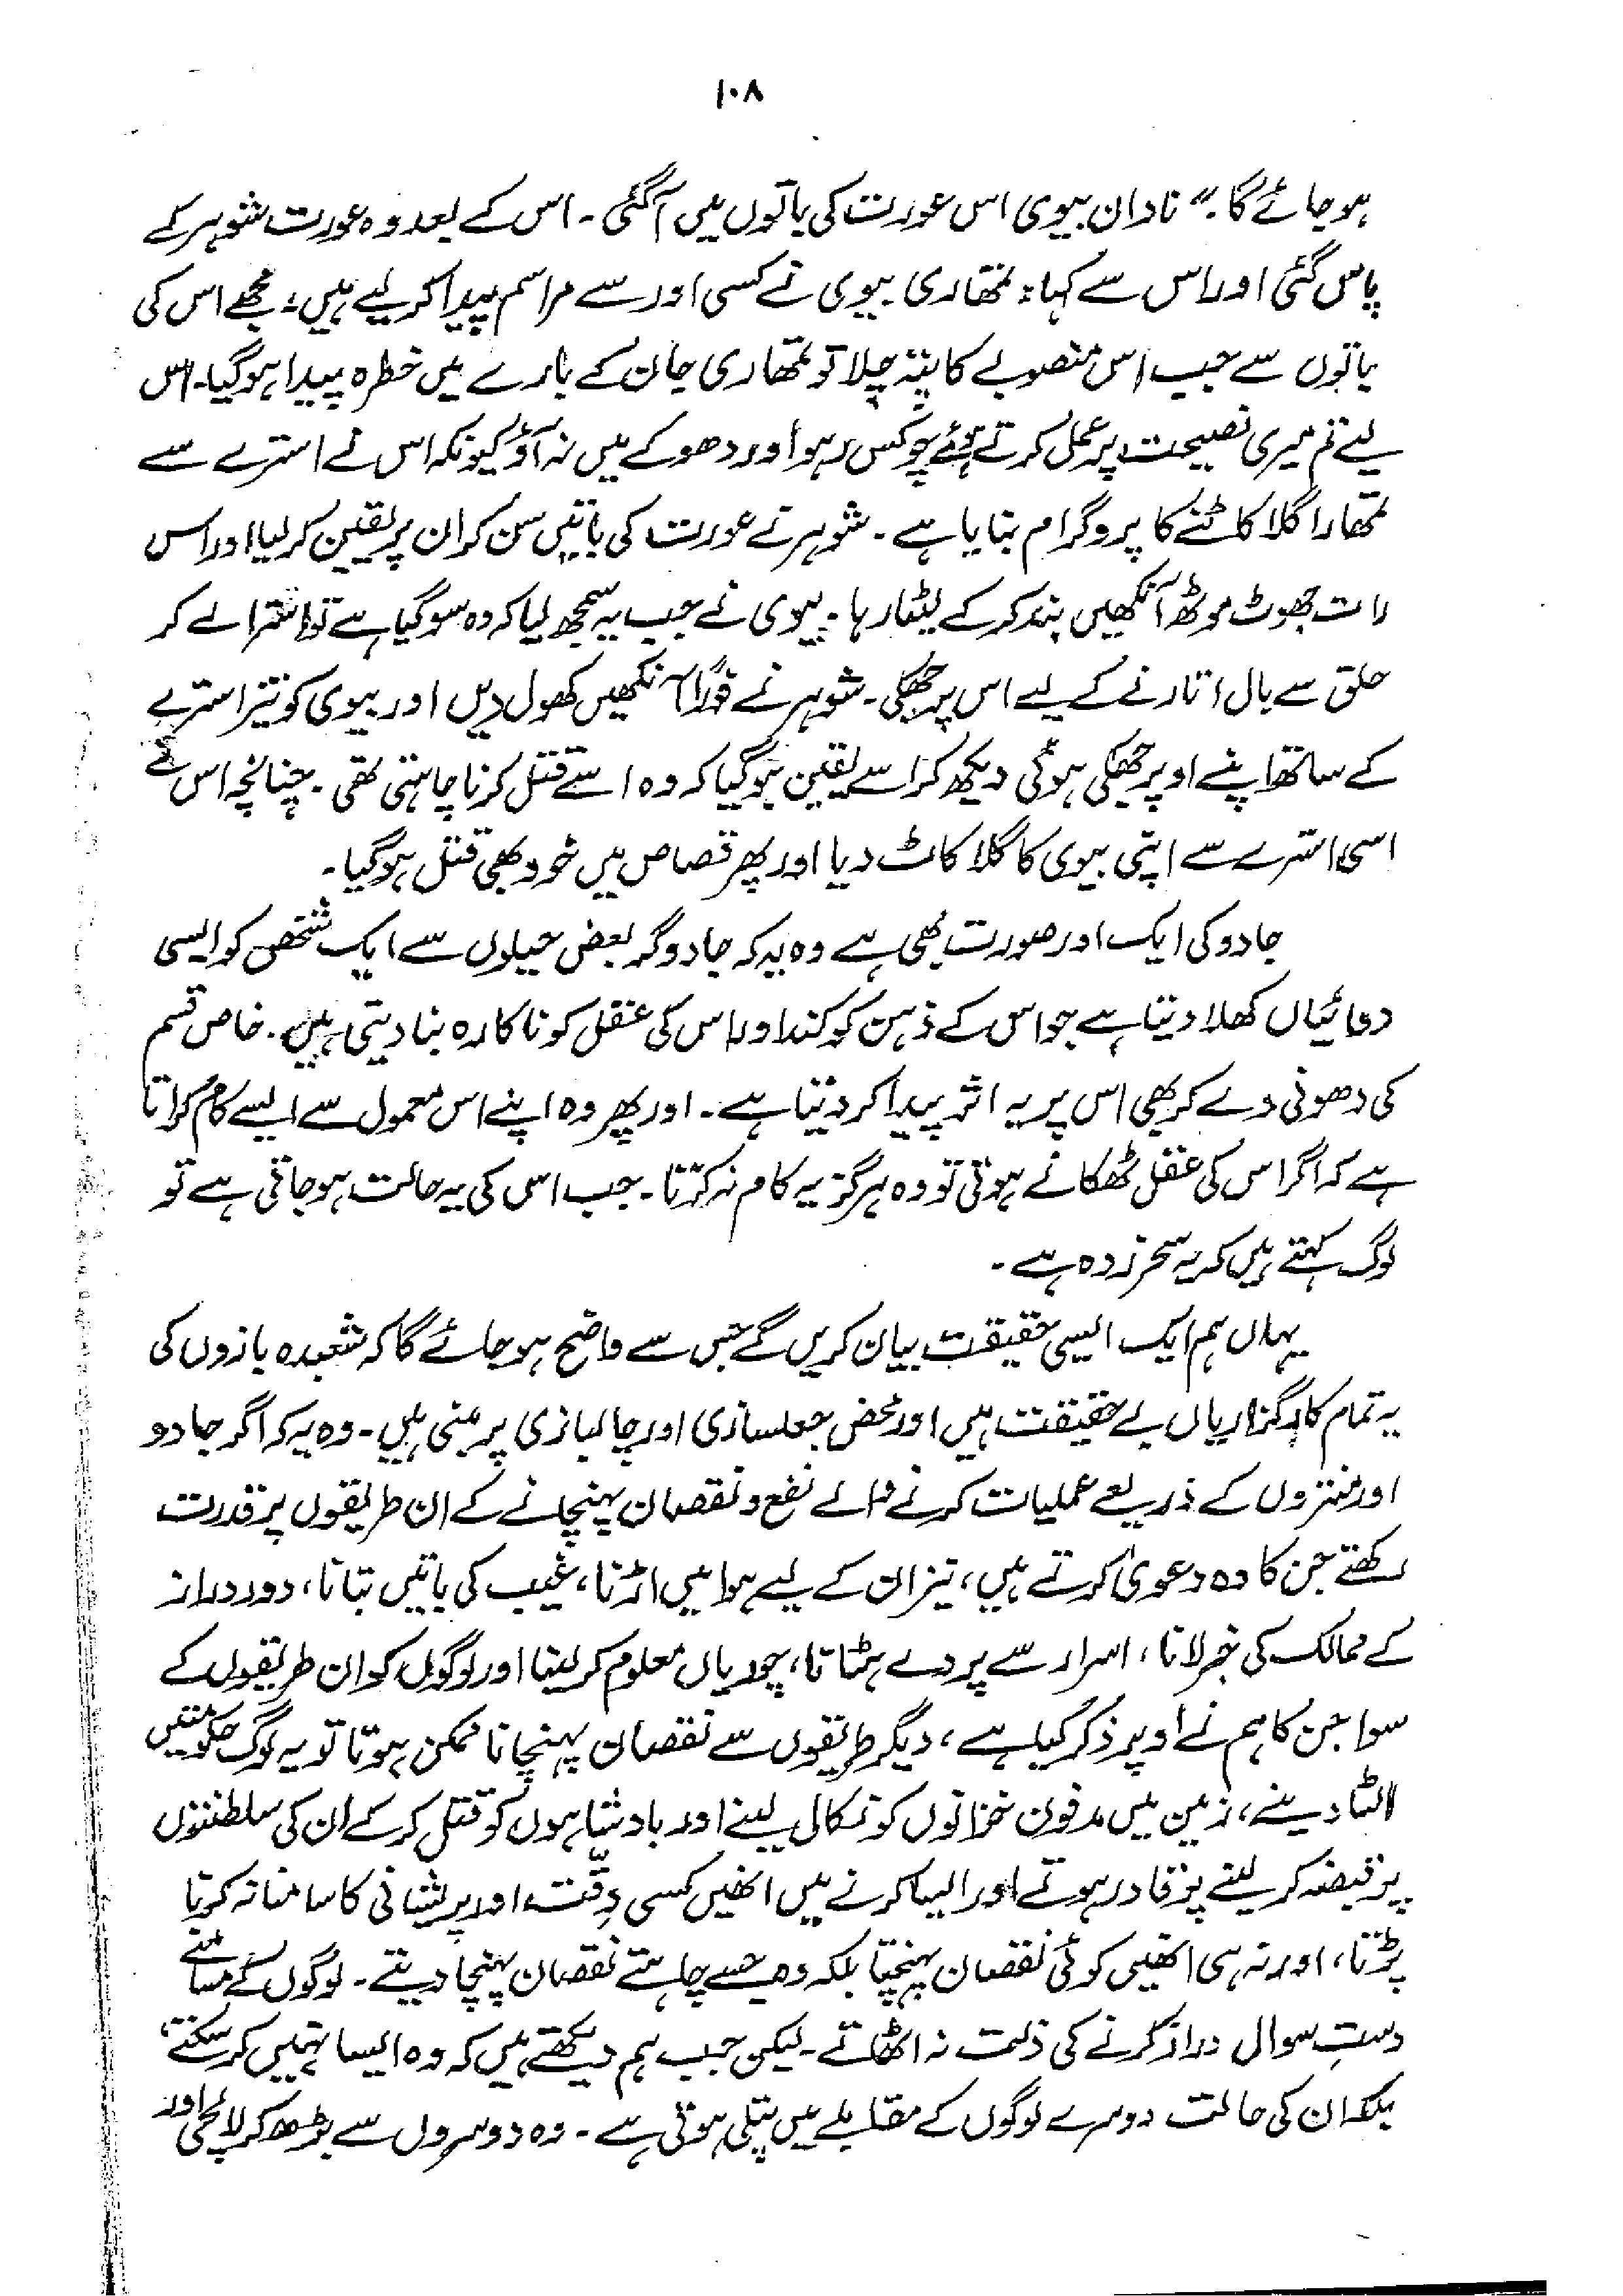 ۱۰۸
ہو جائے گا۔" نادان بیوی اس عورت کی باتوں میں آ گئی۔ اس کے بعد وہ عورت شوہر کے
پاس گئی اور اس سے کہا: تمھاری بیوی نے کسی اور سے مراسم پیدا کر لیے ہیں، مجھے اس کی
باتوں سے جب اس منصوبے کا پتہ چلا تو تمھاری جان کے بارے میں خطرہ پیدا ہو گیا۔ اس
لیے تم میری نصیحت پر عمل کرتے ہوئے چوکس رہو اور دھوکے میں نہ آؤ کیونکہ اس نے استرے سے
تمھارا گلا کاٹنے کا پروگرام بنایا ہے۔ شوہر نے عورت کی باتیں سن کر ان پر یقین کر لیا اور اس
رات جھوٹ موٹھ آنکھیں بند کر کے لیٹا رہا۔ بیوی نے جب یہ سمجھ لیا کہ وہ سو گیا ہے تو استرا لے کر
حلق سے بال اتارنے کے لیے اس پر جھکی۔ شوہر نے فوراً آنکھیں کھول دیں اور بیوی کو تیز استرے
کے ساتھ اپنے اوپر جھکی ہوئی دیکھ کر اسے یقین ہو گیا کہ وہ اسے قتل کرنا چاہتی تھی۔ چنانچہ اس نے
اسی استرے سے اپنی بیوی کا گلا کاٹ دیا اور پھر قصاص میں خود بھی قتل ہو گیا۔
جادو کی ایک اور صورت بھی ہے وہ یہ کہ جادوگر بعض حیلوں سے ایک شخص کو ایسی
دوائیاں کھلا دیتا ہے جو اس کے ذہن کو کند اور اس کی عقل کو ناکارہ بنا دیتی ہیں۔ خاص قسم
کی دھونی دے کر بھی اس پر یہ اثر پیدا کر دیتا ہے۔ اور پھر وہ اپنے اس معمول سے ایسے کام کراتا
ہے کہ اگر اس کی عقل ٹھکانے ہوتی تو وہ ہرگز یہ کام نہ کرتا۔ جب اس کی یہ حالت ہو جاتی ہے تو
لوگ کہتے ہیں کہ یہ سحر زدہ ہے۔
یہاں ہم ایک ایسی حقیقت بیان کریں گے جس سے واضح ہو جائے گا کہ شعبدہ بازوں کی
یہ تمام کارگزاریاں بے حقیقت ہیں اور محض جعلسازی اور چالبازی پر مبنی ہیں۔ وہ یہ کہ اگر جادو
اور منتروں کے ذریعے عملیات کرنے والے نفع و نقصان پہنچانے کے ان طریقوں پر قدرت
رکھتے جن کا وہ دعویٰ کرتے ہیں، نیز ان کے لیے ہوا میں اڑنا، غیب کی باتیں بتانا، دور دراز
کے ممالک کی خبر لانا، اسرار سے پردے ہٹانا، چوریاں معلوم کر لینا اور لوگوں کو ان طریقوں کے
سوا جن کا ہم نے اوپر ذکر کیا ہے، دیگر طریقوں سے نقصان پہنچانا ممکن ہوتا تو یہ لوگ حکومتیں
الٹا دینے، زمین میں مدفون خزانوں کو نکال لینے اور بادشاہوں کو قتل کر کے ان کی سلطنتوں
پر قبضہ کر لینے پر قادر ہوتے اور ایسا کرنے میں انھیں کسی دقّت اور پریشانی کا سامنا نہ کرنا
پڑتا، اور نہ ہی انھیں کوئی نقصان پہنچتا بلکہ وہ جسے چاہتے نقصان پہنچا دیتے۔ لوگوں کے سامنے
دستِ سوال دراز کرنے کی ذلت نہ اٹھاتے۔ لیکن جب ہم دیکھتے ہیں کہ وہ ایسا نہیں کر سکتے،
بلکہ ان کی حالت دوسرے لوگوں کے مقابلے میں پتلی ہوتی ہے۔ وہ دوسروں سے بڑھ کر لالچی اور